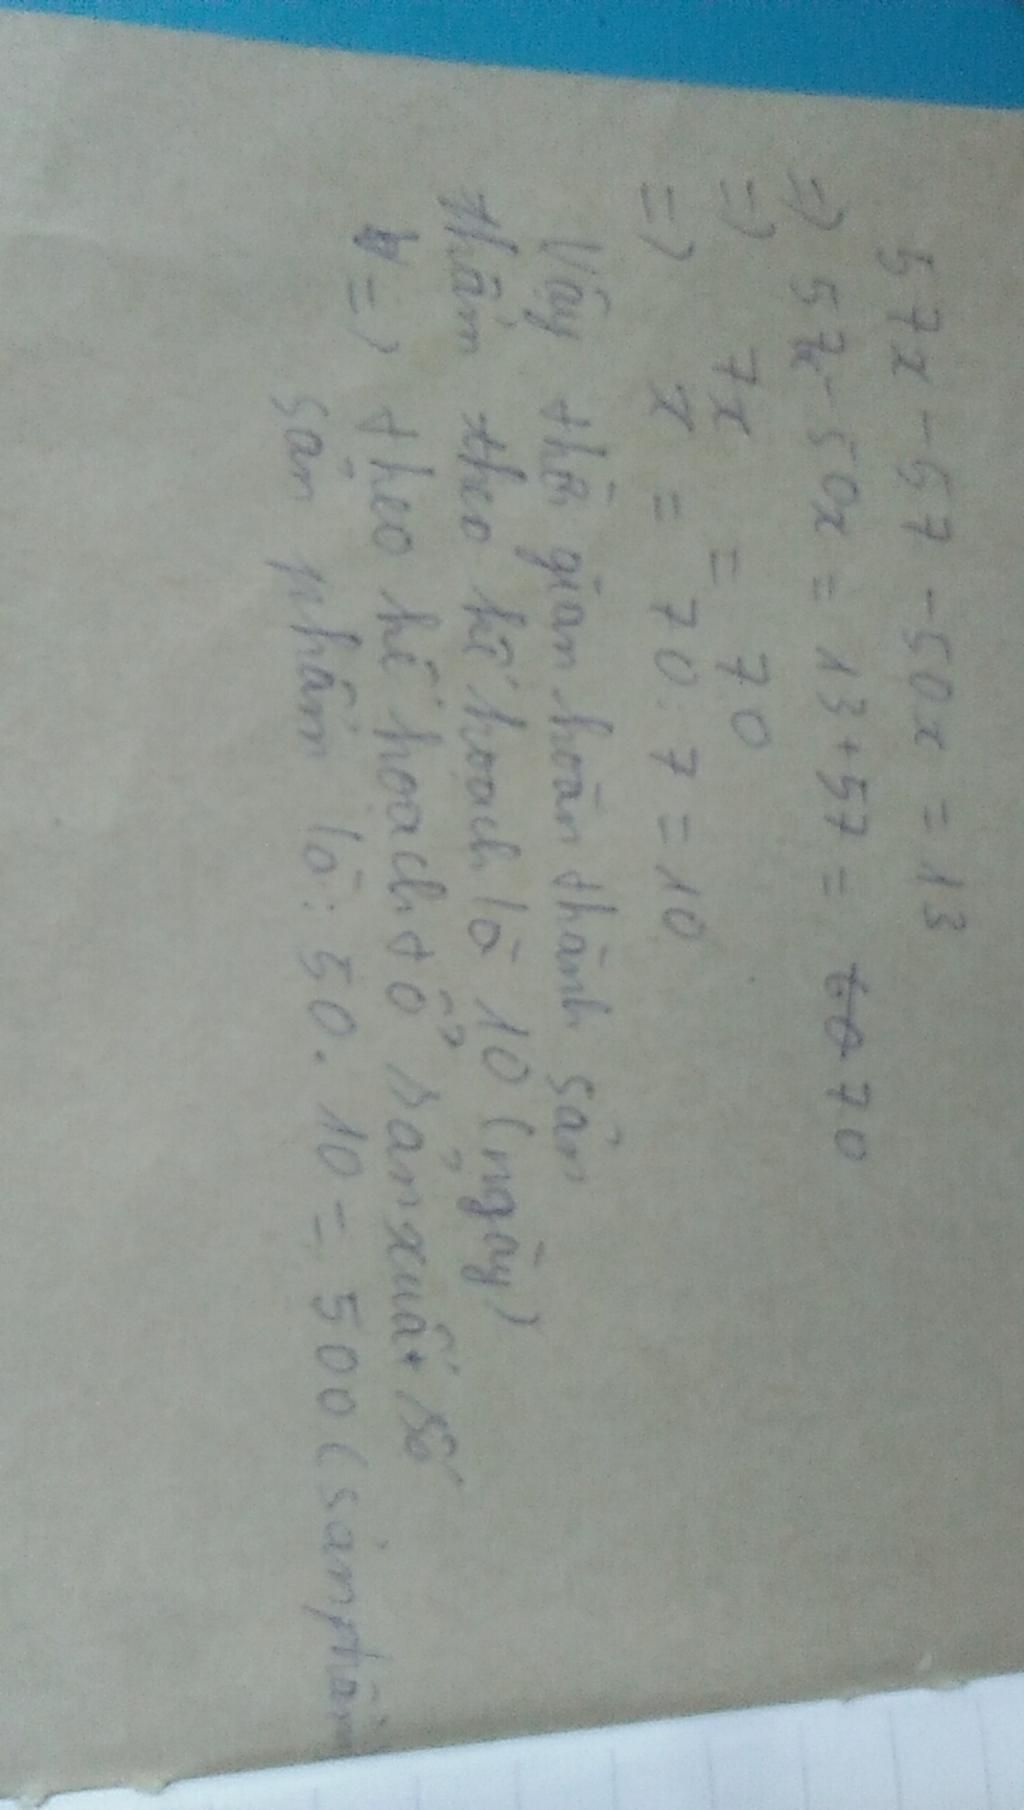 57x - 57 - 50x = 13
=> 57x - 50x = 13 + 57 = 70
=> 7x = 70
=> x = 70 : 7 = 10
Vậy thời gian hoàn thành sản
thẩm theo kế hoạch là 10 (ngày)
=> theo kế hoạch tổ sản xuất số
sản phẩm là: 50 . 10 = 500 (sản phẩm